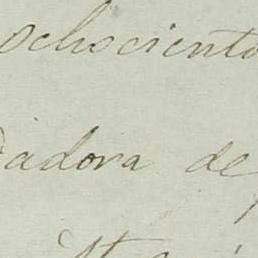 ochociento
adora de